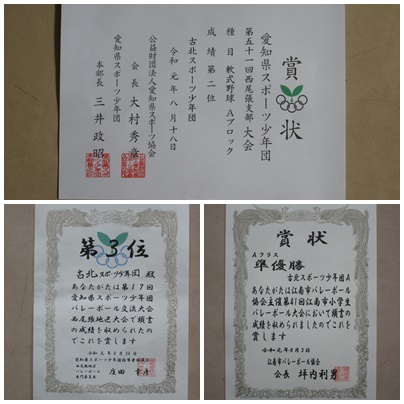 賞状
愛知県スポーツ少年団
第五十一回西尾張支部大会
種目 軟式野球 Aブロック
成績 第二位
古北スポーツ少年団
令和元年八月十八日
公益財団法人愛知県スポーツ協会
会長 大村秀章
愛知県スポーツ少年団
本部長 三井政昭
第3位
古北スポーツ少年団 殿
あなたがたは第17回
愛知県スポーツ少年団
バレーボール交流大会
西尾張地区大会で頭書
の成績を収められたの
でこれを賞します
愛知県スポーツ少年団
バレーボール
庄田
賞状
Aクラス
準優勝
古北スポーツ少年団A
あなたがたは江南市バレーボール
協会主催第41回江南市小学生
バレーボール大会において頭書
の成績を収められましたのでこれを
賞します
令和元年8月3日
江南市バレーボール協会
会長 坪内利男